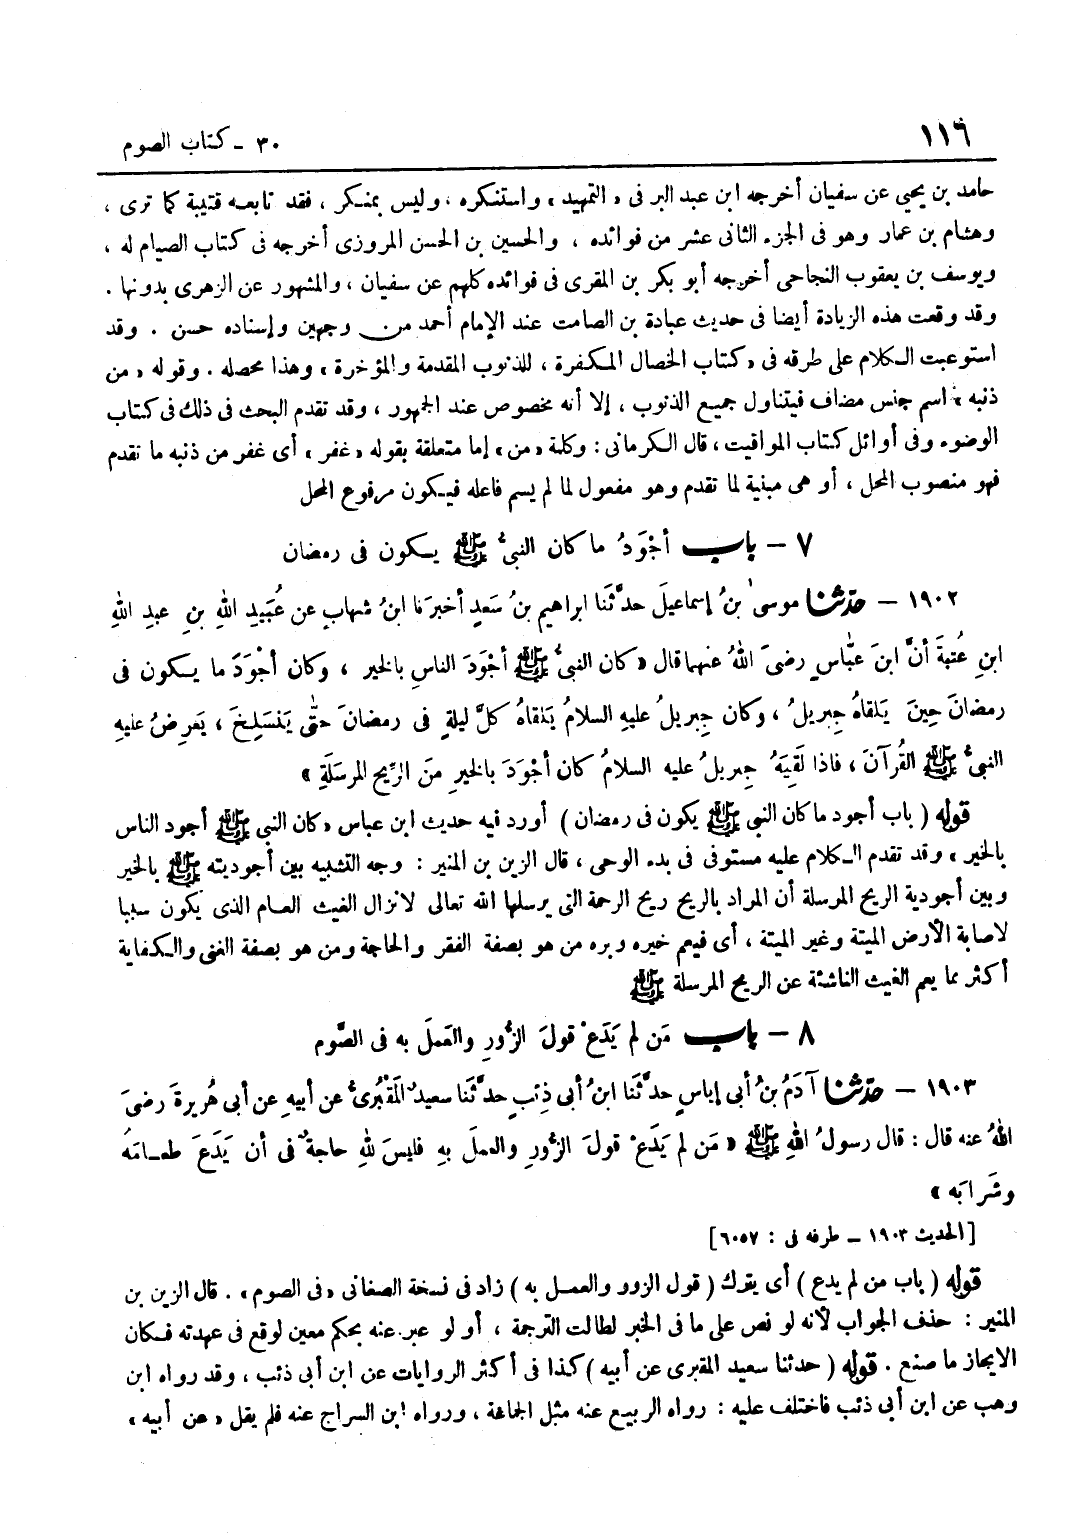 ١١٦
٣٠ - كتاب الصوم
حامد بن يحيى عن سفيان أخرجه ابن عبد البر فى « التمهيد » واستنكره ، وليس بمنكر ، فقد تابعه قتيبة كما ترى ،
وهشام بن عمار وهو فى الجزء الثانى عشر من فوائده ، والحسين بن الحسن المروزى أخرجه فى كتاب الصيام له ،
ويوسف بن يعقوب النجاحى أخرجه أبو بكر بن المقرى فى فوائده كلهم عن سفيان ، والمشهور عن الزهرى بدونها .
وقد وقعت هذه الزيادة أيضا فى حديث عبادة بن الصامت عند الإمام أحمد من وجهين وإسناده حسن . وقد
استوعبت الكلام على طرقه فى « كتاب الخصال المكفرة ، للذنوب المقدمة والمؤخرة » وهذا محصله . وقوله « من
ذنبه » اسم جنس مضاف فيتناول جميع الذنوب ، إلا أنه مخصوص عند الجمهور ، وقد تقدم البحث فى ذلك فى كتاب
الوضوء وفى أوائل كتاب المواقيت ، قال الكرمانى : وكلمة « من » إما متعلقة بقوله « غفر » أى غفر من ذنبه ما تقدم
فهو منصوب المحل ، أو هى مبنية لما تقدم وهو مفعول لما لم يسم فاعله فيكون مرفوع المحل
٧ - باب أجْوَدُ ما كان النبىُّ ﷺ يكون فى رمضان
١٩٠٢ - حدّثنا موسىٰ بنُ إسماعيلَ حدَّثَنا ابراهيم بنُ سَعدٍ أخبرَنا ابنُ شهابٍ عن عُبَيدِ اللهِ بنِ عبدِ اللهِ
ابنِ عُتبةَ أنَّ ابنَ عبّاسٍ رضىَ اللهُ عنهما قال « كان النبىُّ ﷺ أجْوَدَ الناسِ بالخير ، وكان أجْوَدَ ما يكون فى
رمضانَ حِينَ يَلقاهُ جِبريلُ ، وكان جِبريلُ عليهِ السلامُ يَلقاهُ كلَّ ليلةٍ فى رمضانَ حتّى يَنسَلِخَ ، يَعرِضُ عليهِ
النبىُّ ﷺ القُرآنَ ، فاذا لَقِيَهُ جِبريلُ عليه السلامُ كان أجْوَدَ بالخيرِ منَ الرِّيحِ المرسَلَةِ »
قوله ( باب أجود ما كان النبى ﷺ يكون فى رمضان ) أورد فيه حديث ابن عباس « كان النبى ﷺ أجود الناس
بالخير » وقد تقدم الكلام عليه مستوفى فى بدء الوحى ، قال الزين بن المنير : وجه التشبيه بين أجوديته ﷺ بالخير
وبين أجودية الريح المرسلة أن المراد بالريح ريح الرحمة التى يرسلها الله تعالى لانزال الغيث العام الذى يكون سببا
لاصابة الأرض الميتة وغير الميتة ، أى فيعم خيره وبره من هو بصفة الفقر والحاجة ومن هو بصفة الغنى والكفاية
أكثر مما يعم الغيث الناشئة عن الريح المرسلة ﷺ
٨ - باب مَن لم يَدَعْ قولَ الزُّورِ والعَملَ به فى الصَّوم
١٩٠٣ - حدّثنا آدَمُ بنُ أبى إياسٍ حدَّثَنا ابنُ أبى ذِئبٍ حدَّثَنا سعيدٌ المَقْبُرىُّ عن أبيهِ عن أبى هُريرةَ رضىَ
اللهُ عنه قال : قال رسولُ اللهِ ﷺ « مَن لم يَدَعْ قولَ الزُّورِ والعملَ بهِ فليسَ للهِ حاجةٌ فى أن يَدَعَ طعامَهُ
وشَرابَه »
[الحديث ١٩٠٣ - طرفه فى : ٦٠٥٧]
قوله ( باب من لم يدع ) أى يترك ( قول الزور والعمل به ) زاد فى نسخة الصغانى « فى الصوم » . قال الزين بن
المنير : حذف الجواب لأنه لو نص على ما فى الخبر لطالت الترجمة ، أو لو عبر عنه بحكم معين لوقع فى عهدته فكان
الايجاز ما صنع . قوله ( حدثنا سعيد المقبرى عن أبيه ) كذا فى أكثر الروايات عن ابن أبى ذئب ، وقد رواه ابن
وهب عن ابن أبى ذئب فاختلف عليه : رواه الربيع عنه مثل الجماعة ، ورواه ابن السراج عنه فلم يقل « عن أبيه »